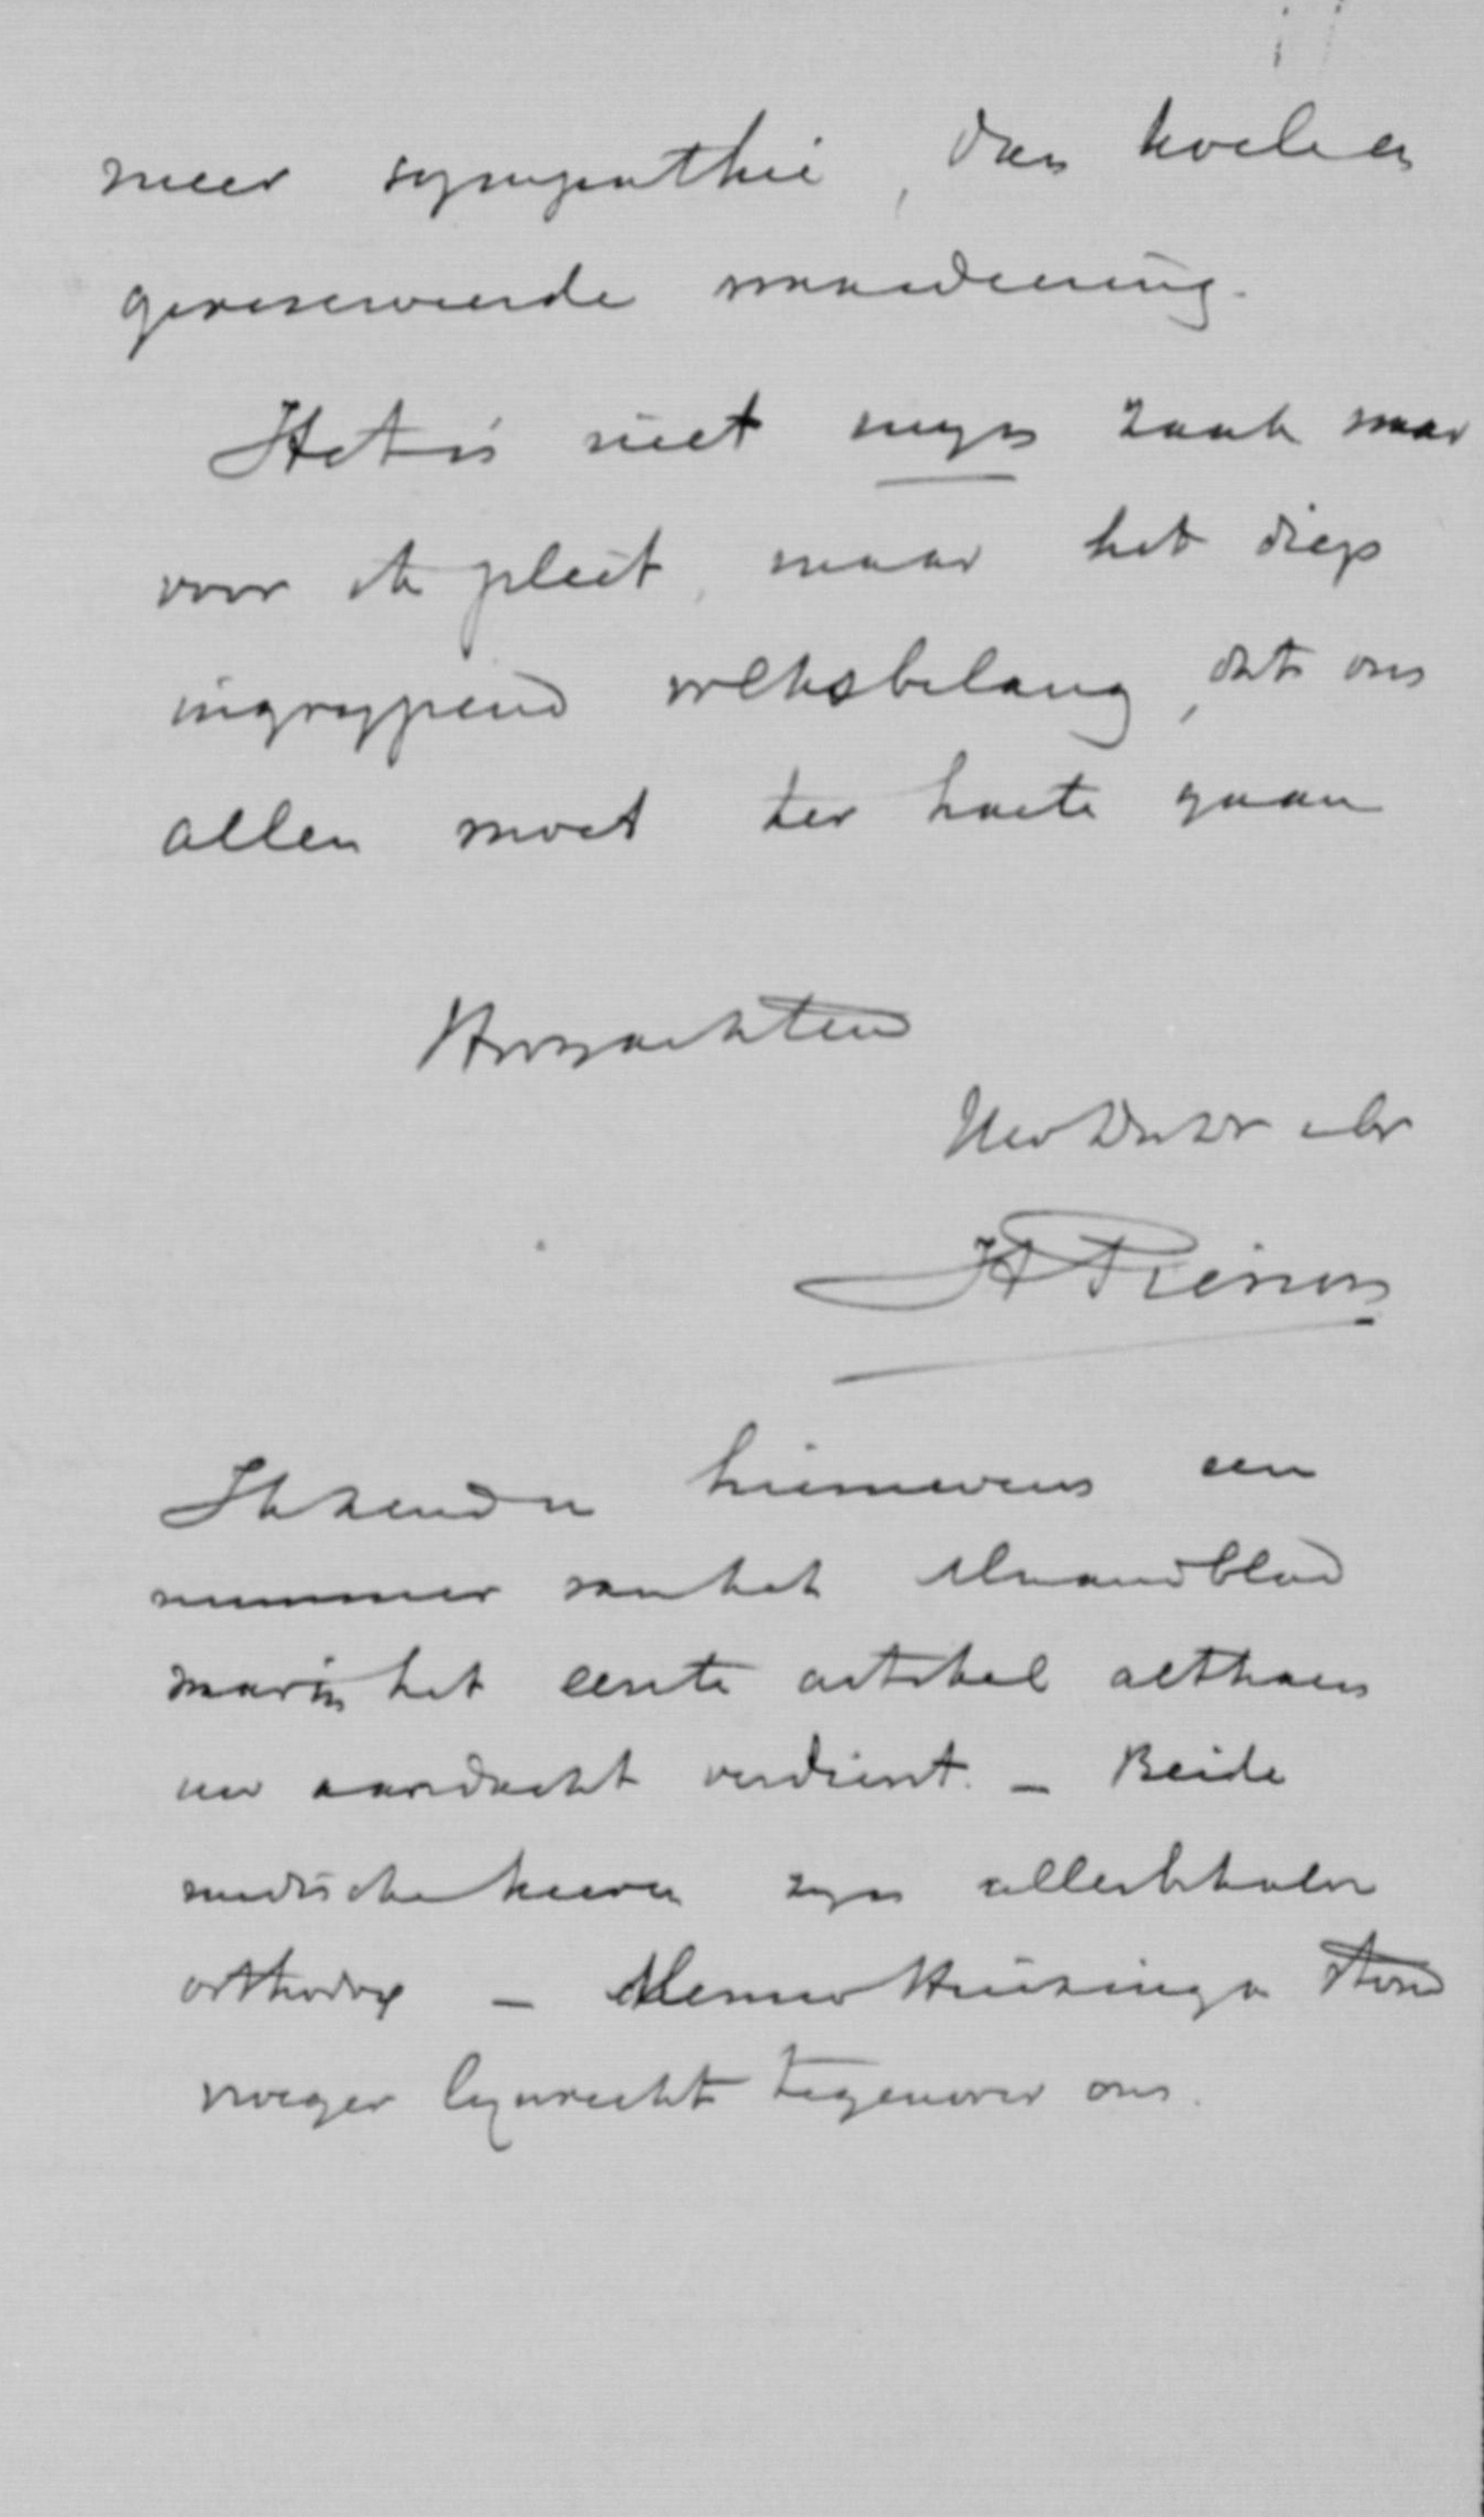 meer sympathie, dan koele en
gereserveerde waardeering.
Het is niet myn zaak waar
voor ik pleit, maar het diep
ingrypend volksbelang, dat ons
allen moet ter harte gaan
Hoogachtend
Uw dw dr
H Pierson
Ik zend u hiernevens een
nummer van het Maandblad
waarin het eerste artikel althans
uw aandacht verdient. — Beide
medische heeren zyn allesbehalve
orthodox — Menno Huizinga stond
vroeger lynrecht tegenover ons.